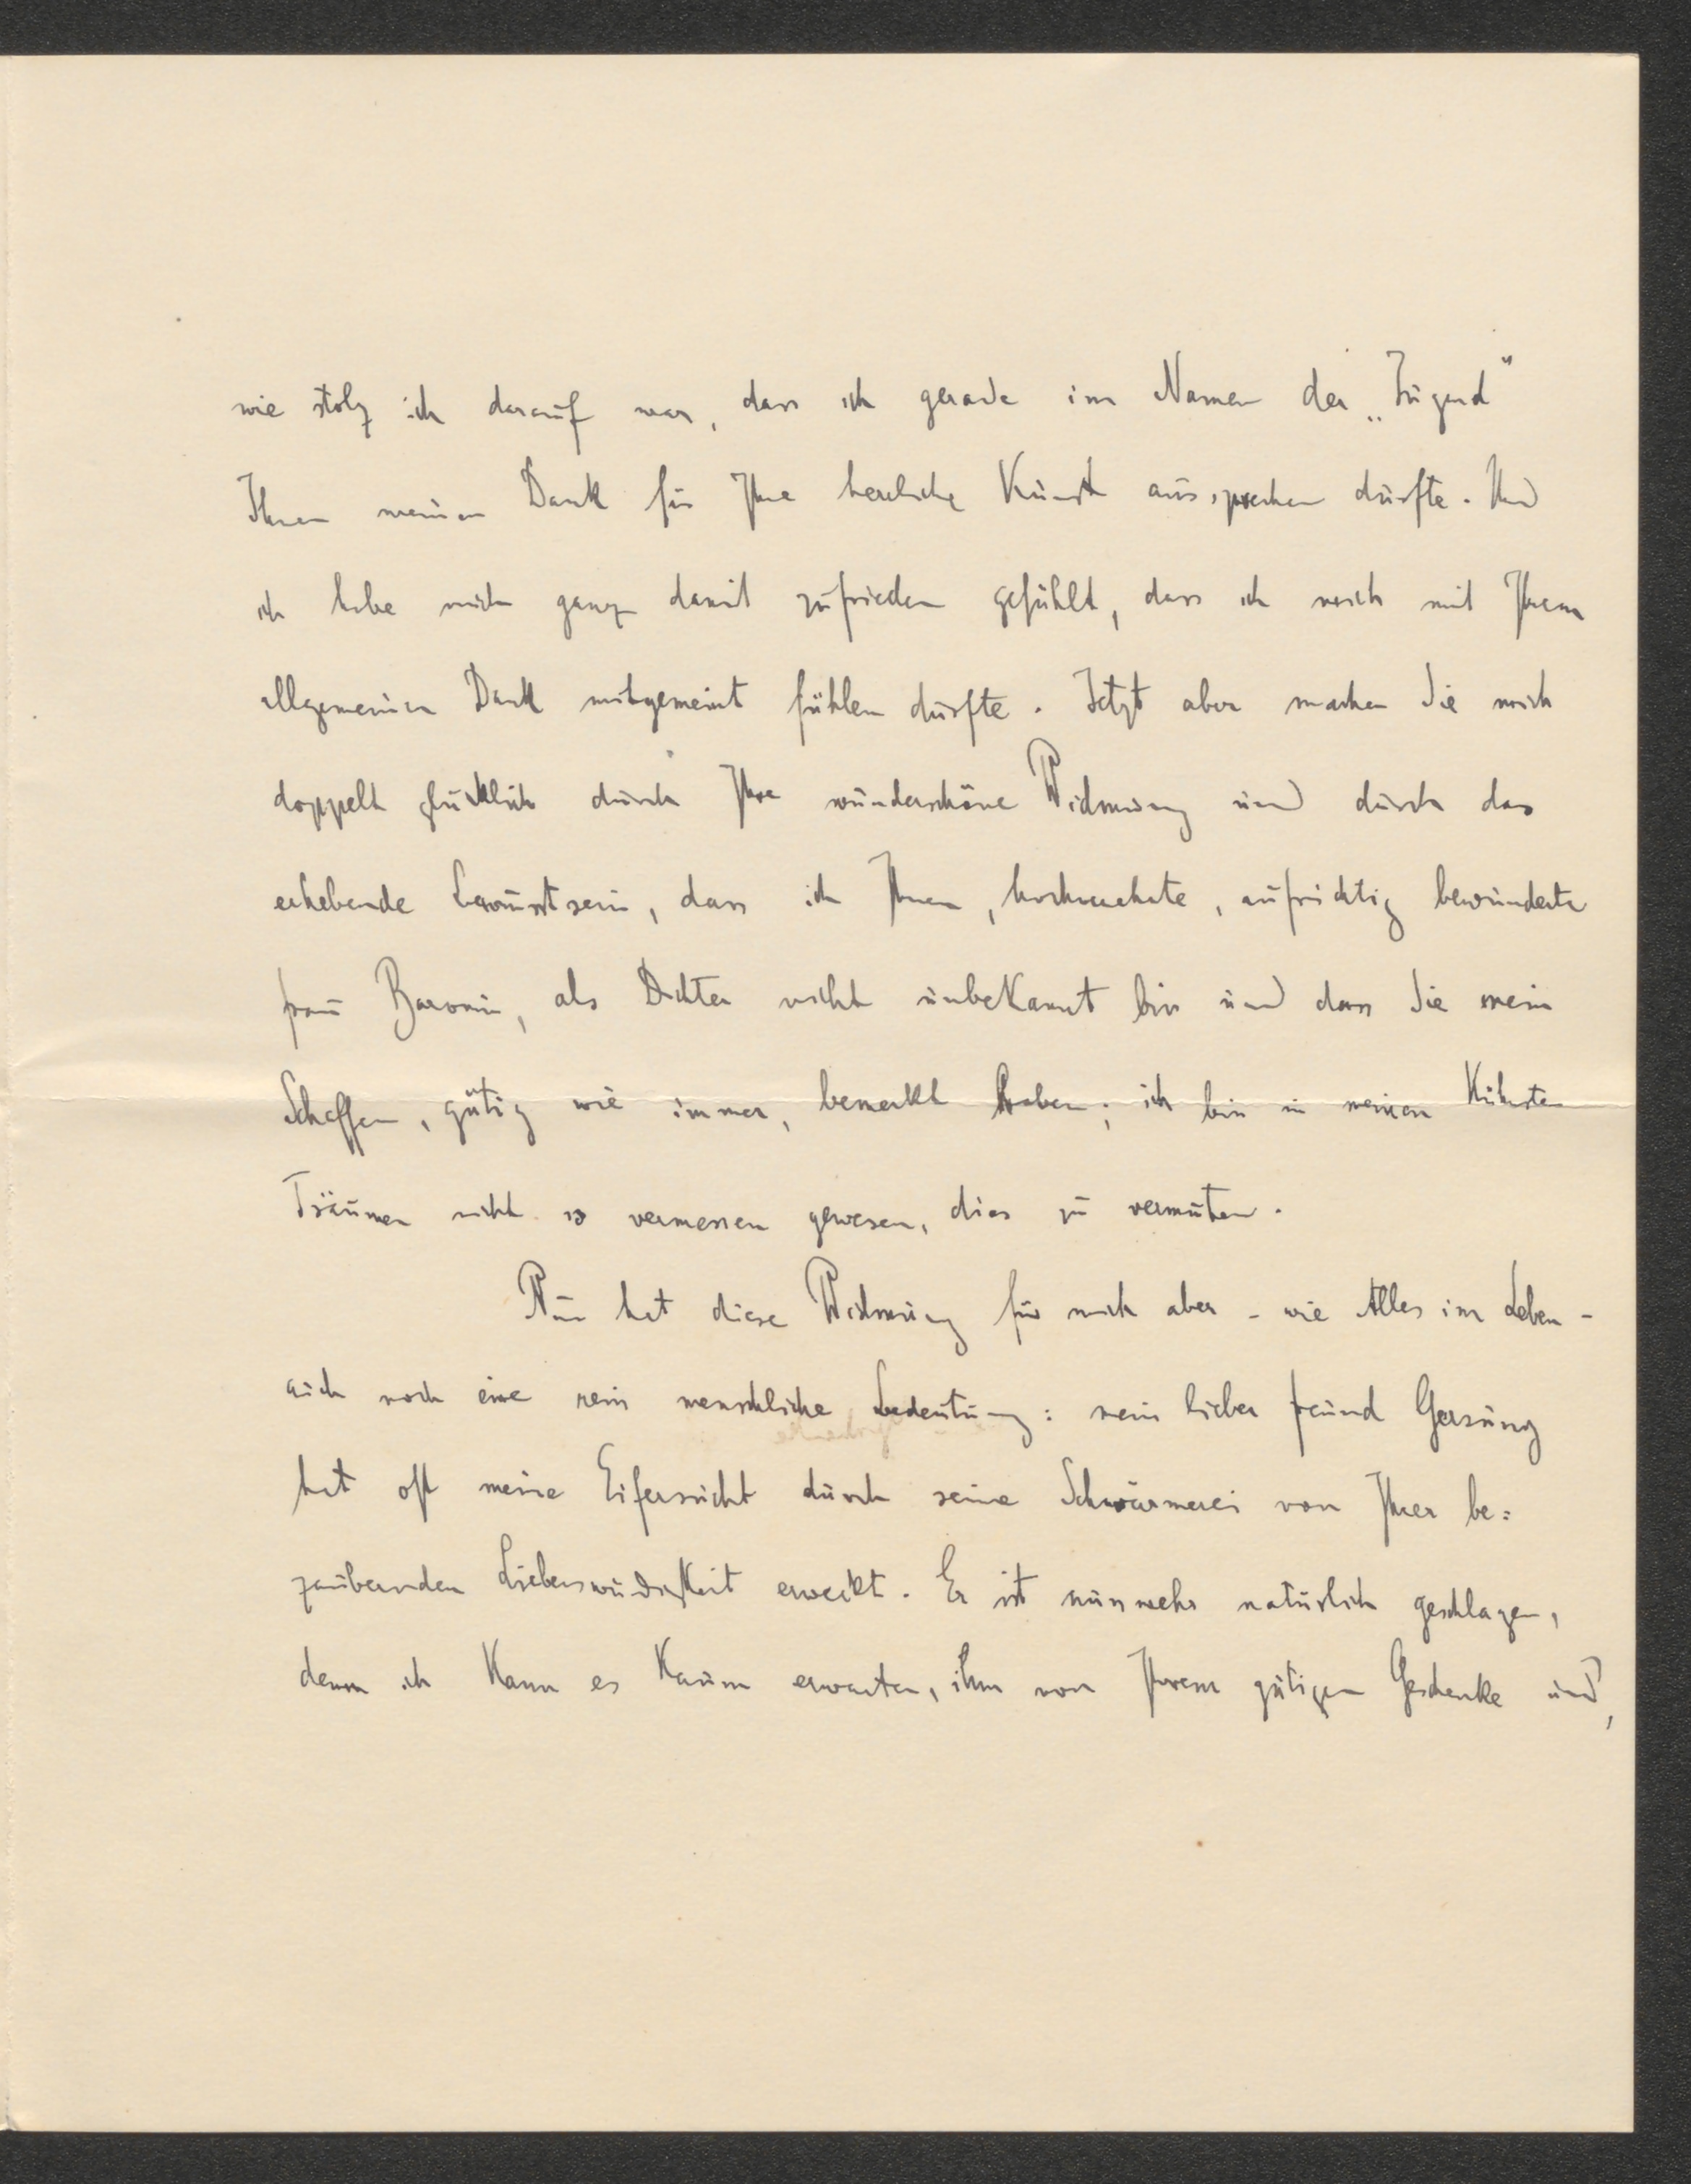 wie stolz ich darauf war, dass ich gerade im Namen der „Jugend“
Ihnen meinen Dank für Ihre herrliche Kunst aussprechen durfte. Und
ich habe mich ganz damit zufrieden gefühlt, dass ich mich mit Ihrem
allgemeinen Dank mitgemeint fühlen durfte. Jetzt aber machen Sie mich
doppelt glücklich durch Ihre wunderschöne Widmung und durch das
erhebende Bewusstsein, dass ich Ihnen, hochverehrte, aufrichtig bewunderte
Frau Baronin, als Dichter nicht unbekannt bin und dass Sie mein
Schaffen, gütig wie immer, bemerkt haben; ich bin in meinen kühnsten
Träumen nicht so vermessen gewesen, dies zu vermuten.
Nun hat diese Widmung für mich aber - wie Alles im Leben -
auch noch eine rein menschliche Bedeutung: mein lieber Freund Gersuny
hat oft meine Eifersucht durch seine Schwärmerei von Ihrer be=
zaubernden Liebenswürdigkeit erweckt. Er ist nunmehr natürlich geschlagen,
denn ich kann es kaum erwarten, ihm von Ihrem gütigen Geschenke und,